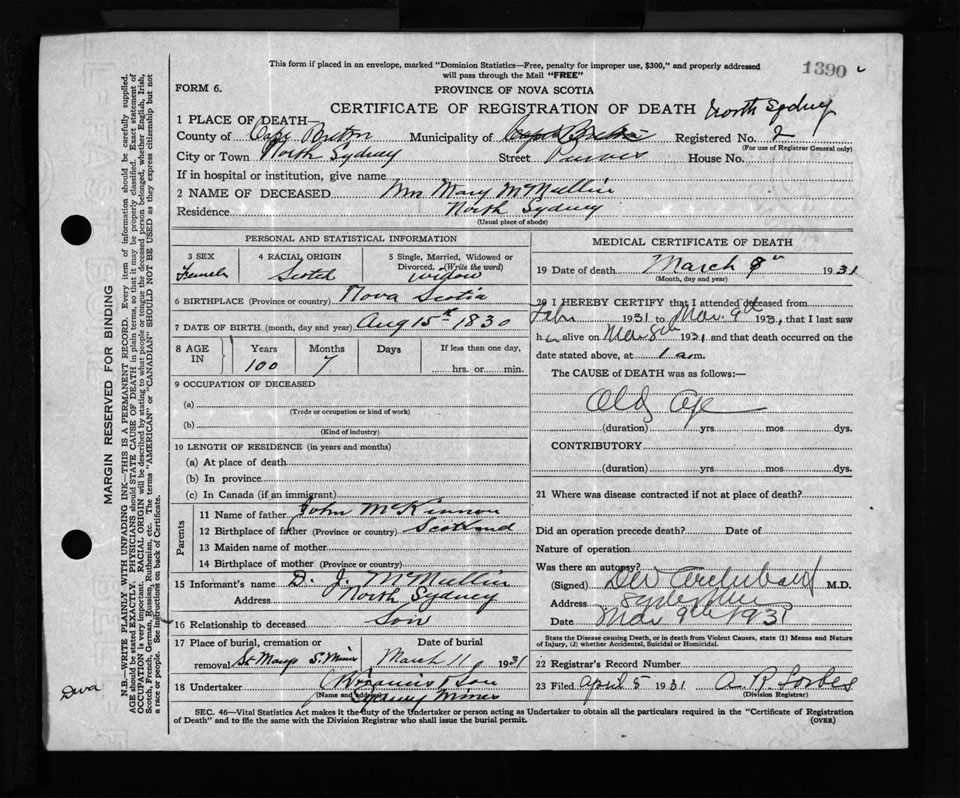 This form if placed in an envelope, marked "Dominion Statistics—Free, penalty for improper use, $300," and properly addressed
will pass through the Mail "FREE"
1390
FORM 6.
PROVINCE OF NOVA SCOTIA
CERTIFICATE OF REGISTRATION OF DEATH North Sydney
1 PLACE OF DEATH
County of Cape Breton Municipality of Cape Breton Registered No. 2
(For use of Registrar General only)
City or Town North Sydney Street Purves House No.
If in hospital or institution, give name
2 NAME OF DECEASED Mrs Mary McMullin
Residence North Sydney
(Usual place of abode)
PERSONAL AND STATISTICAL INFORMATION
3 SEX 4 RACIAL ORIGIN 5 Single, Married, Widowed or
Divorced. (Write the word)
Female Scotch widow
6 BIRTHPLACE (Province or country) Nova Scotia
7 DATE OF BIRTH (month, day and year) Aug 15th 1830
8 AGE IN Years Months Days If less than one day,
100 7 hrs. or min.
9 OCCUPATION OF DECEASED
(a)
(Trade or occupation or kind of work)
(b)
(Kind of industry)
10 LENGTH OF RESIDENCE (in years and months)
(a) At place of death
(b) In province
(c) In Canada (if an immigrant)
Parents
11 Name of father John McKinnon
12 Birthplace of father (Province or country) Scotland
13 Maiden name of mother
14 Birthplace of mother (Province or country)
15 Informant's name D. J. McMullin
Address North Sydney
16 Relationship to deceased Son
17 Place of burial, cremation or Date of burial
removal St Marys S. Mines March 11 1931
18 Undertaker & Son
(Name and address) Sydney Mines
MEDICAL CERTIFICATE OF DEATH
19 Date of death March 9 1931
(Month, day and year)
20 I HEREBY CERTIFY that I attended deceased from
1931 to Mar. 9th 1931, that I last saw
her alive on Mar 8th 1931 and that death occurred on the
date stated above, at 1 a.m.
The CAUSE of DEATH was as follows:—
Old Age
(duration) yrs mos dys.
CONTRIBUTORY
(duration) yrs. mos. dys.
21 Where was disease contracted if not at place of death?
Did an operation precede death? Date of
Nature of operation
Was there an autopsy?
(Signed) Archibald M.D.
Address Sydney Mines
Date Mar 9th 1931
State the Disease causing Death, or in death from Violent Causes, state (1) Means and Nature
of Injury, (2) whether Accidental, Suicidal or Homicidal.
22 Registrar's Record Number
23 Filed April 5 1931 A. R. Forbes
(Division Registrar)
SEC. 46—Vital Statistics Act makes it the duty of the Undertaker or person acting as Undertaker to obtain all the particulars required in the "Certificate of Registration
of Death" and to file the same with the Division Registrar who shall issue the burial permit. (OVER)
MARGIN RESERVED FOR BINDING
N.B.—WRITE PLAINLY WITH UNFADING INK—THIS IS A PERMANENT RECORD. Every item of information should be carefully supplied.
AGE should be stated EXACTLY. PHYSICIANS should STATE CAUSE OF DEATH in plain terms, so that it may be properly classified. Exact statement of
OCCUPATION is very important. RACIAL ORIGIN will be described by stating to what people or tongue the deceased person belonged, whether English, Irish,
Scotch, French, German, Russian, Ruthenian, etc. The terms "AMERICAN" or "CANADIAN" SHOULD NOT BE USED as they express citizenship but not
a race or people. See instructions on back of Certificate.